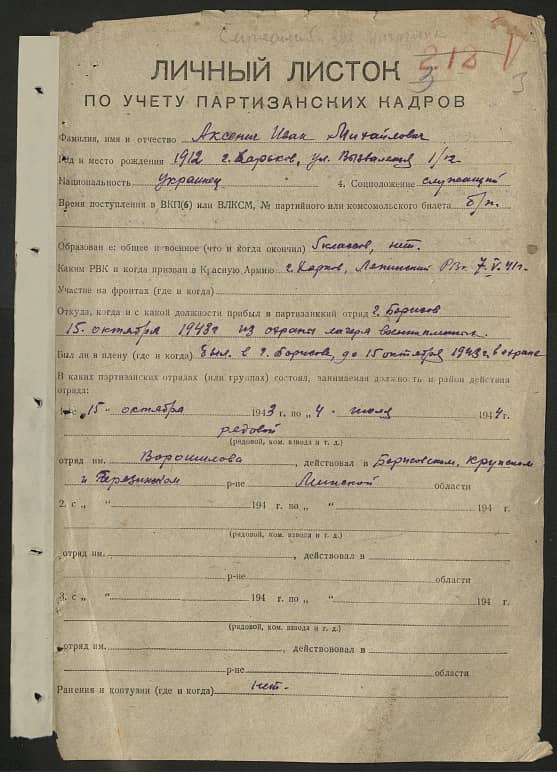 218
3
3
ЛИЧНЫЙ ЛИСТОК
ПО УЧЕТУ ПАРТИЗАНСКИХ КАДРОВ
Фамилия, имя и отчество Иван Михайлович
Год и место рождения 1912 г. Харьков, ул. 1/12
Национальность украинец 4. Соцположение служащий
Время поступления в ВКП(б) или ВЛКСМ, № партийного или комсомольского билета б/п.
Образован е: общее и военное (что и когда окончил) 5 классов, нет.
Каким РВК и когда призван в Красную Армию г. Харков, Ленинский 7.V.41г.
Участие на фронтах (где и когда)
Откуда, когда и с какой должности прибыл в партизанкий отряд г. Борисов
15. октября 1943г из охраны лагеря военнопленных.
Был ли в плену (где и когда) Был в г. Борисов, до 15 октября 1943г. в охране
В каких партизанских отрядах (или группах) состоял, занимаемая должность и район действия
отряда:
1. с „15“ октября 1943 г. по „4“ июля 1944г.
рядовой
(рядовой, ком. взвода и т. д.)
отряд им. Ворошилова, действовал в Борисовском, Крупском
и Березинском р-не Минской области
2. с „ “ 194 г. по „ “ 194 г.
(рядовой, ком. взвода и т. д.)
отряд им. , действовал в
р-не области
3. с „ “ 194 г. по „ “ 194 г.
(рядовой, ком. взвода и т. д.)
отряд им. , действовал в
р-не области
Ранения и контузии (где и когда) нет.